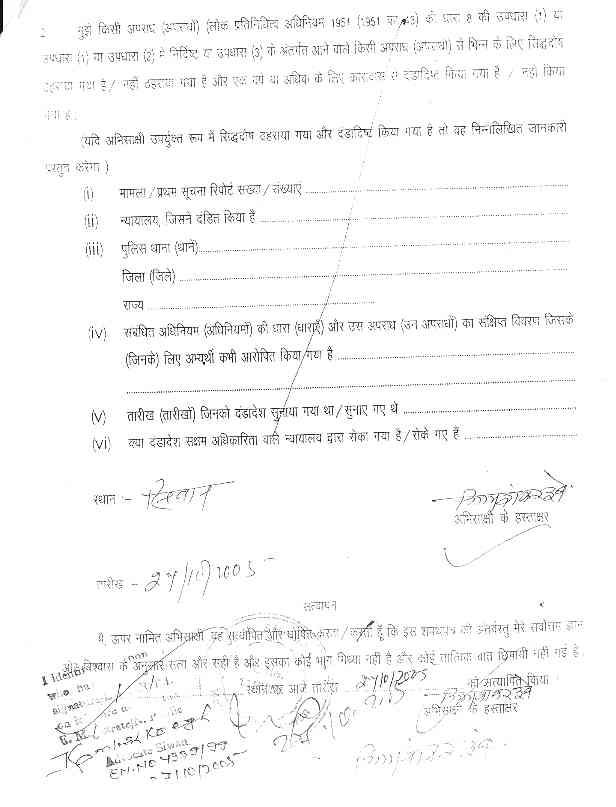 2 मुझे किसी अपराध (अपराधों) (लोक प्रतिनिधित्व अधिनियम 1951 (1951 का 43) की धारा 8 की उपधारा (1) या
उपधारा (1) या उपधारा (2) में निर्दिष्ट या उपधारा (3) के अंतर्गत आने वाले किसी अपराध (अपराधों) से भिन्न के लिए सिद्धदोष
ठहराया गया है / नहीं ठहराया गया है और एक वर्ष या अधिक के लिए कारावास से दंडादिष्ट किया गया है / नहीं किया
गया है :
(यदि अभिसाक्षी उपर्युक्त रूप में सिद्धदोष ठहराया गया और दंडादिष्ट किया गया है तो वह निम्नलिखित जानकारी
प्रस्तुत करेगा )
(i) मामला / प्रथम सूचना रिपोर्ट संख्या / संख्याएं
(ii) न्यायालय, जिसने दंडित किया है
(iii) पुलिस थाना (थाने)
जिला (जिले)
राज्य
(iv) संबंधित अधिनियम (अधिनियमों) की धारा (धाराएँ) और उस अपराध (उन अपराधों) का संक्षिप्त विवरण जिसके
(जिनके) लिए अभ्यर्थी कभी आरोपित किया गया है
(v) तारीख (तारीखों) जिनको दंडादेश सुनाया गया था / सुनाए गए थे
(vi) क्या दंडादेश सक्षम अधिकारिता वाले न्यायालय द्वारा रोका गया है / रोके गए हैं
स्थान :- सिवान
अभिसाक्षी के हस्ताक्षर
तारीख - 27/10/2005
सत्यापन
मैं, ऊपर नामित अभिसाक्षी यह सत्यापित और घोषित करता / करती हूँ कि इस शपथपत्र की अंतर्वस्तु मेरे सर्वोत्तम ज्ञान
और विश्वास के अनुसार सत्य और सही है और इसका कोई भाग मिथ्या नहीं है और कोई तात्विक बात छिपायी नहीं गई है
आज तारीख 27/10/2005 को सत्यापित किया
अभिसाक्षी के हस्ताक्षर
I Identi
who ha
signat
Advocate Siwan
EN.NO 4399/99